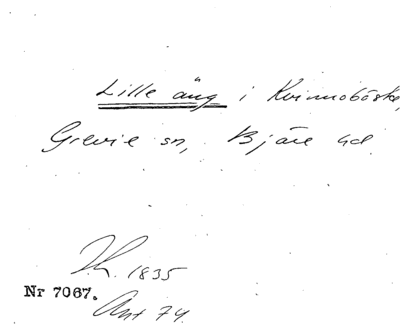 Lille äng i Kvinnoböske,
Grevie sn, Bjäre hd
Th. 1835
Nr 7067.
Ant 74.